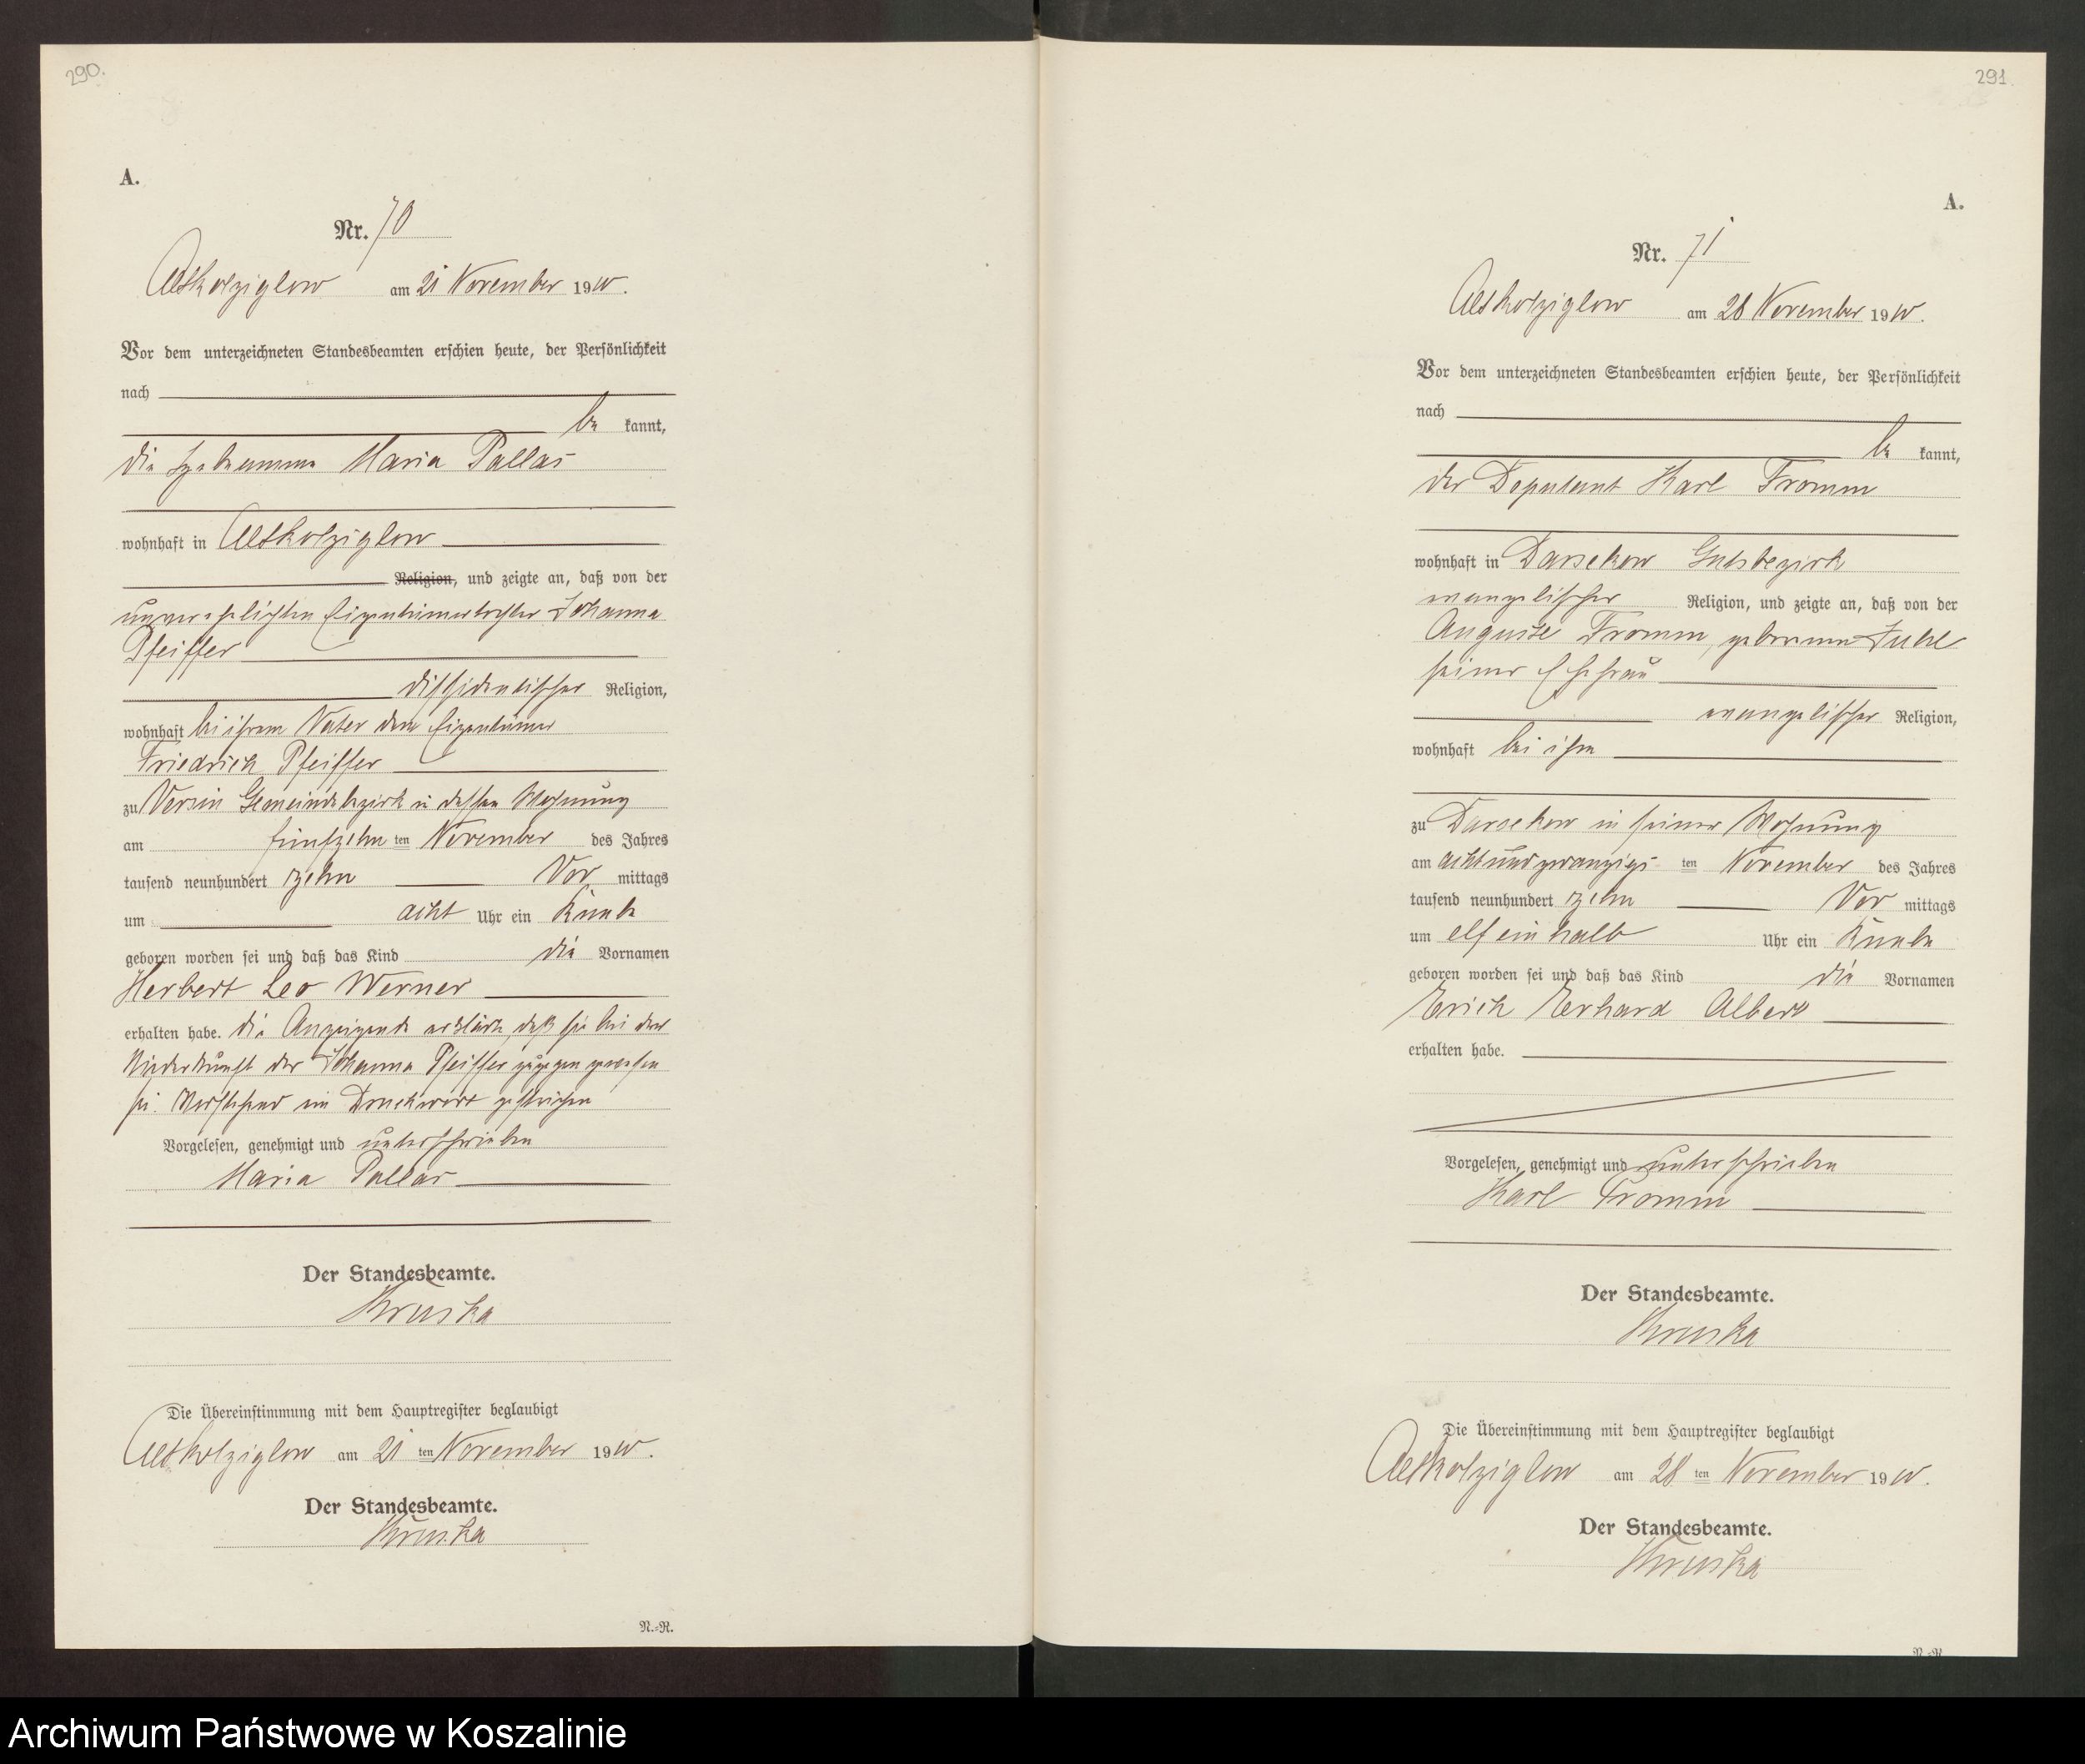 290.
A.
Nr. 70
Altkolziglow am 21 November 1910.
Vor dem unterzeichneten Standesbeamten erschien heute, der Persönlichkeit
nach
be kannt,
die Hebamme Maria Pallas
wohnhaft in Altkolziglow
Religion, und zeigte an, daß von der
unverehelichten Eigentümertochter Johanna
Pfeiffer
dissidentischer Religion,
wohnhaft bei ihrem Vater dem Eigentümer
Friedrich Pfeiffer
zu Versin Gemeindebezirk in dessen Wohnung
am fünfzehn ten November des Jahres
tausend neunhundert zehn Vor mittags
um acht Uhr ein Knabe
geboren worden sei und daß das Kind die Vornamen
Herbert Leo Werner
erhalten habe. Die Anzeigende erklärte, daß sie bei der
Niederkunft der Johanna Pfeiffer zugegen gewesen
sei. Vorstehend ein Druckwort gestrichen
Vorgelesen, genehmigt und unterschrieben
Maria Pallas
Der Standesbeamte.
Kruska
Die Übereinstimmung mit dem Hauptregister beglaubigt
Altkolziglow am 21 ten November 1910.
Der Standesbeamte.
Kruska
N.-R.
291.
A.
Nr. 71
Altkolziglow am 28 November 1910.
Vor dem unterzeichneten Standesbeamten erschien heute, der Persönlichkeit
nach
be kannt,
der Deputant Karl Fromm
wohnhaft in Darsekow Gutsbezirk
evangelischer Religion, und zeigte an, daß von der
Auguste Fromm, geborenen Juhl
seiner Ehefrau
evangelischer Religion,
wohnhaft bei ihm
zu Darsekow in seiner Wohnung
am achtundzwanzigs ten November des Jahres
tausend neunhundert zehn Vor mittags
um elf ein halb Uhr ein Knabe
geboren worden sei und daß das Kind die Vornamen
Erich Erhard Albert
erhalten habe.
Vorgelesen, genehmigt und unterschrieben
Karl Fromm
Der Standesbeamte.
Kruska
Die Übereinstimmung mit dem Hauptregister beglaubigt
Altkolziglow am 28 ten November 1910.
Der Standesbeamte.
Kruska
N.-R.
Archiwum Państwowe w Koszalinie